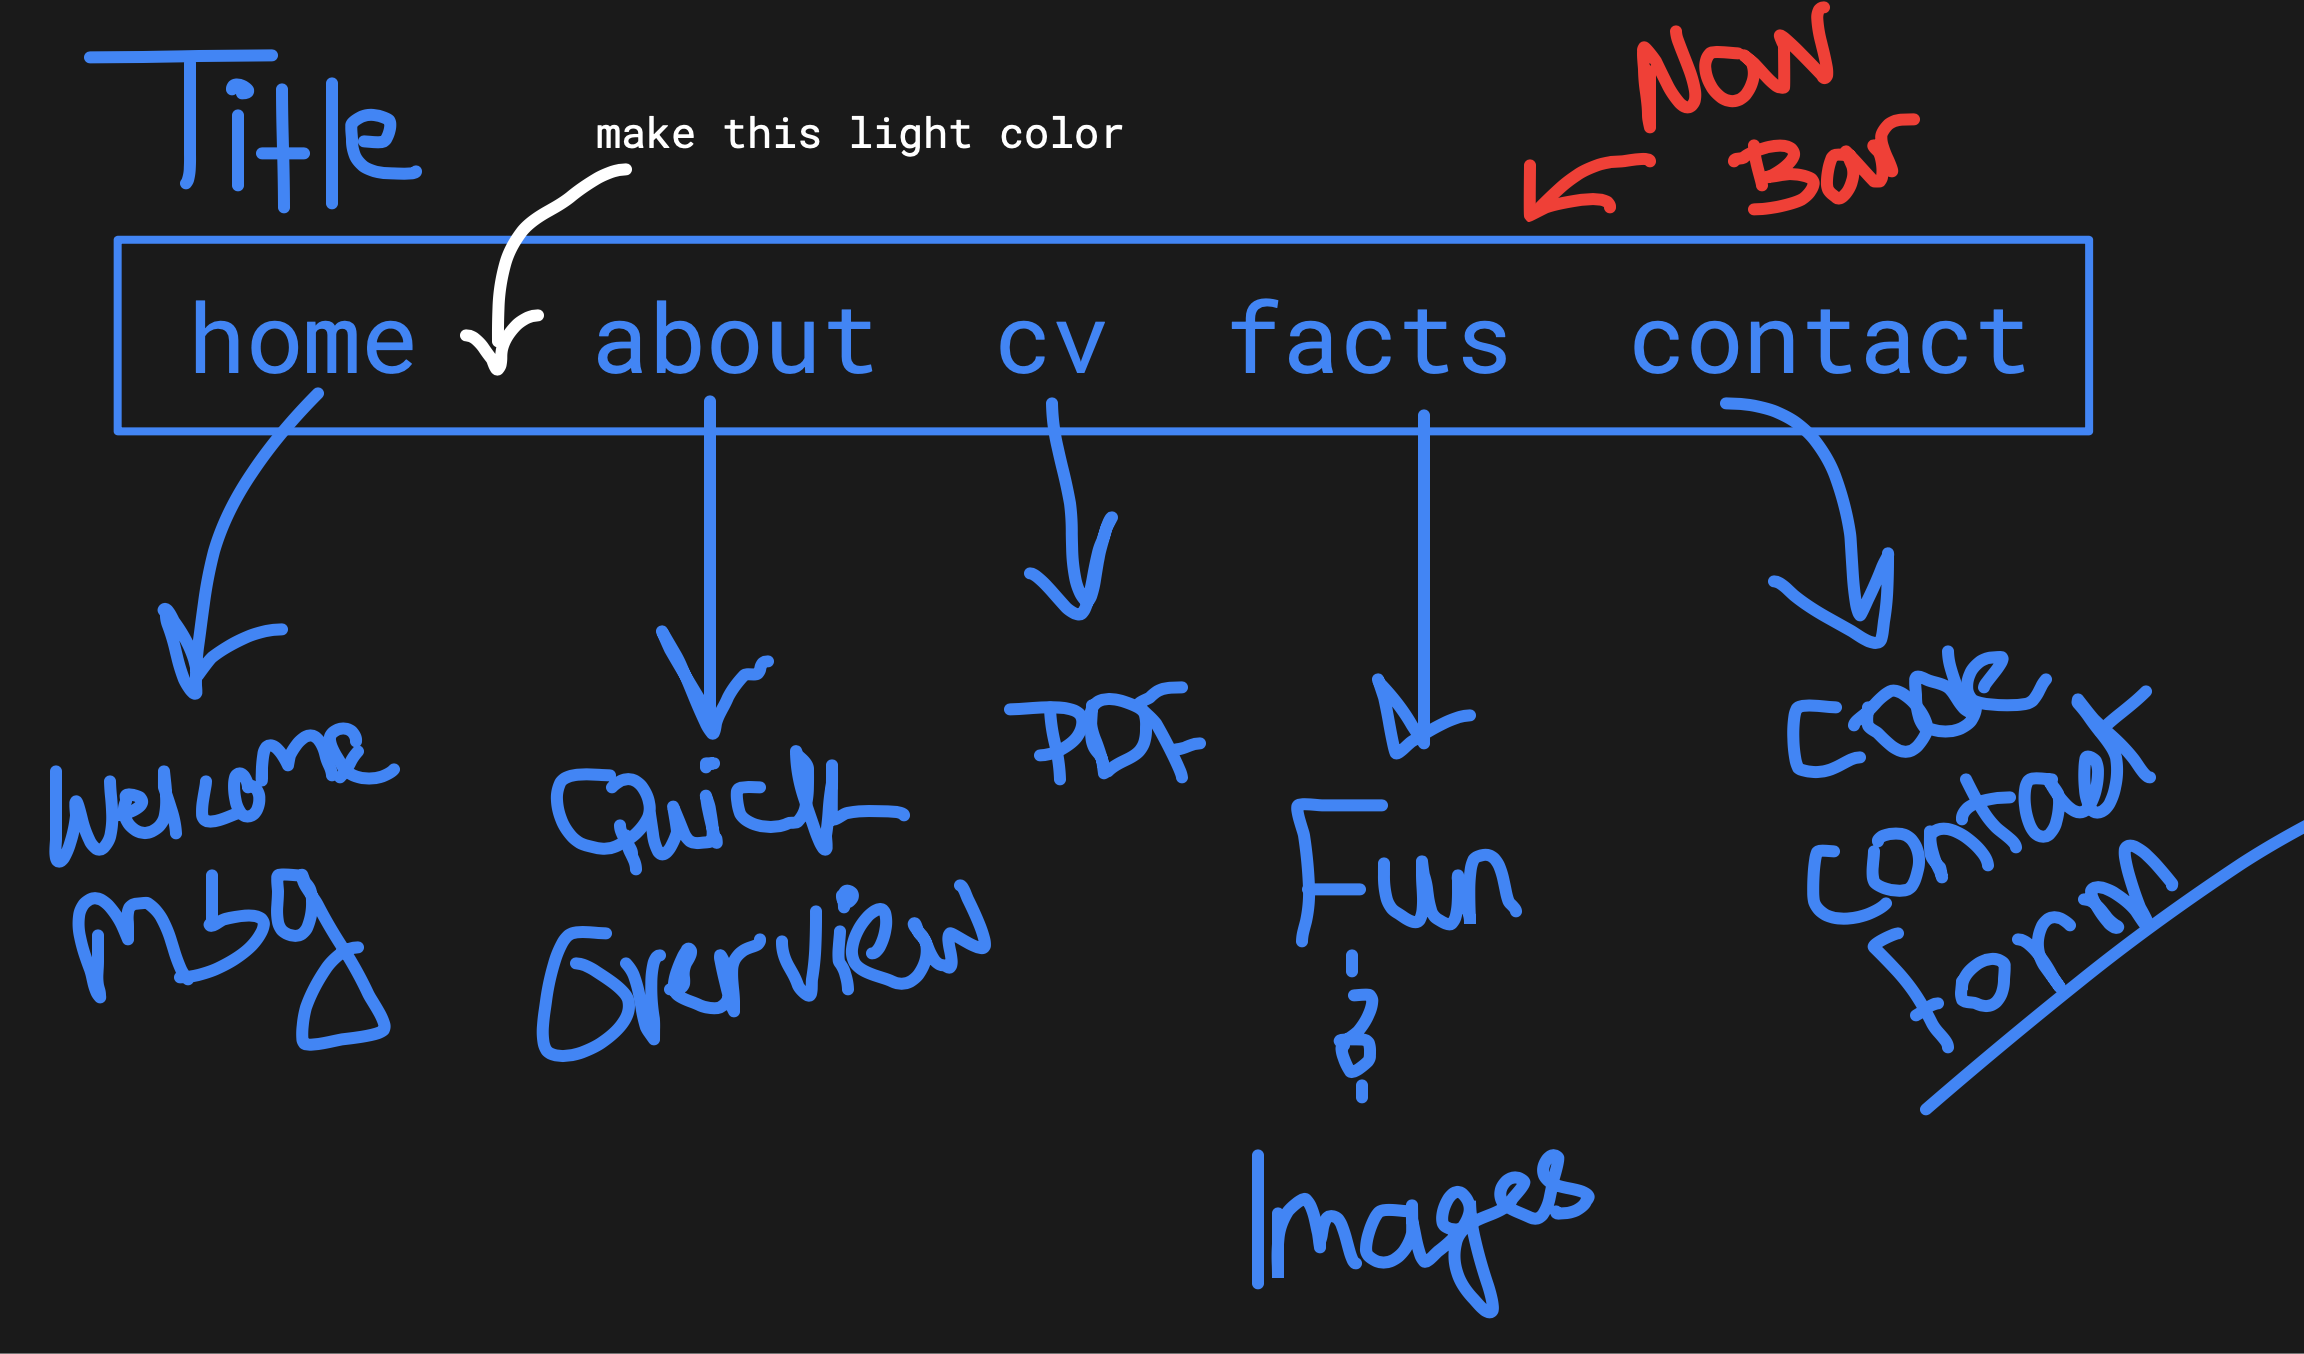 Title
make this light color
Nav
Bar
home about cv facts contact
Welcome
msg
Quick
Overview
PDF
Fun
&
Images
Code
Contact
form